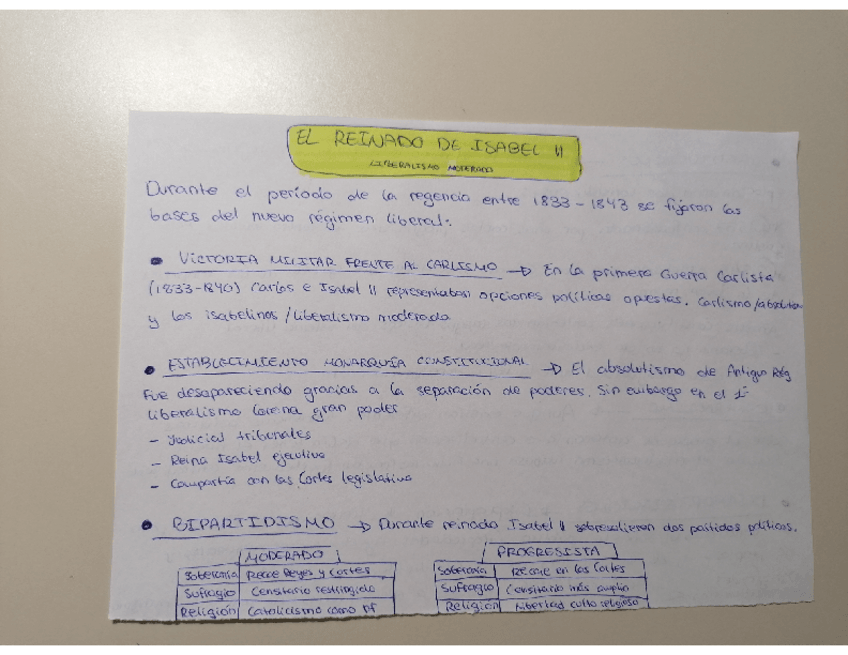 EL REINADO DE ISABEL II
LIBERALISMO MODERADO
Durante el período de la regencia entre 1833-1843 se fijaron las
bases del nuevo régimen liberal:
• VICTORIA MILITAR FRENTE AL CARLISMO → En la primera Guerra Carlista
(1833-1840) Carlos e Isabel II representaban opciones políticas opuestas. Carlismo/absolutis
y los isabelinos/liberalismo moderado
• ESTABLECIMIENTO MONARQUÍA CONSTITUCIONAL → El absolutismo de Antiguo Rég
fue desapareciendo gracias a la separación de poderes. Sin embargo en el 1er
liberalismo Corona gran poder
- Judicial tribunales
- Reina Isabel ejecutivo
- Compartía con las Cortes legislativo
• BIPARTIDISMO → Durante reinado Isabel II sobresalieron dos partidos políticos.
MODERADO
Soberanía Recae Reyes y Cortes
Sufragio Censitario restringido
Religión Catolicismo como
PROGRESISTA
Soberanía Recae en las Cortes
Sufragio Censitario más amplio
Religión Libertad culto religioso